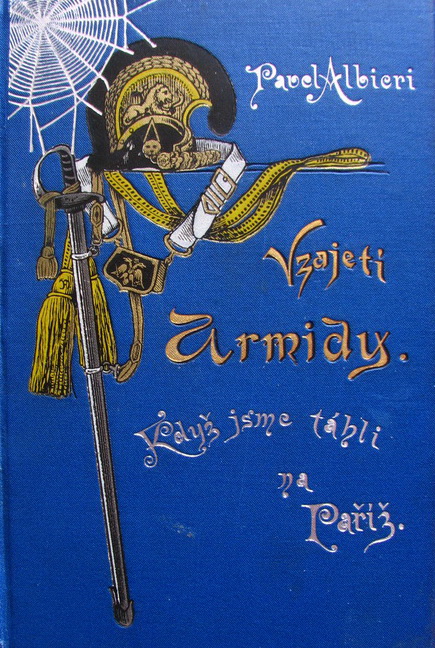 Pavel Albieri
V zajetí
Armidy.
Když jsme táhli
na
Paříž.